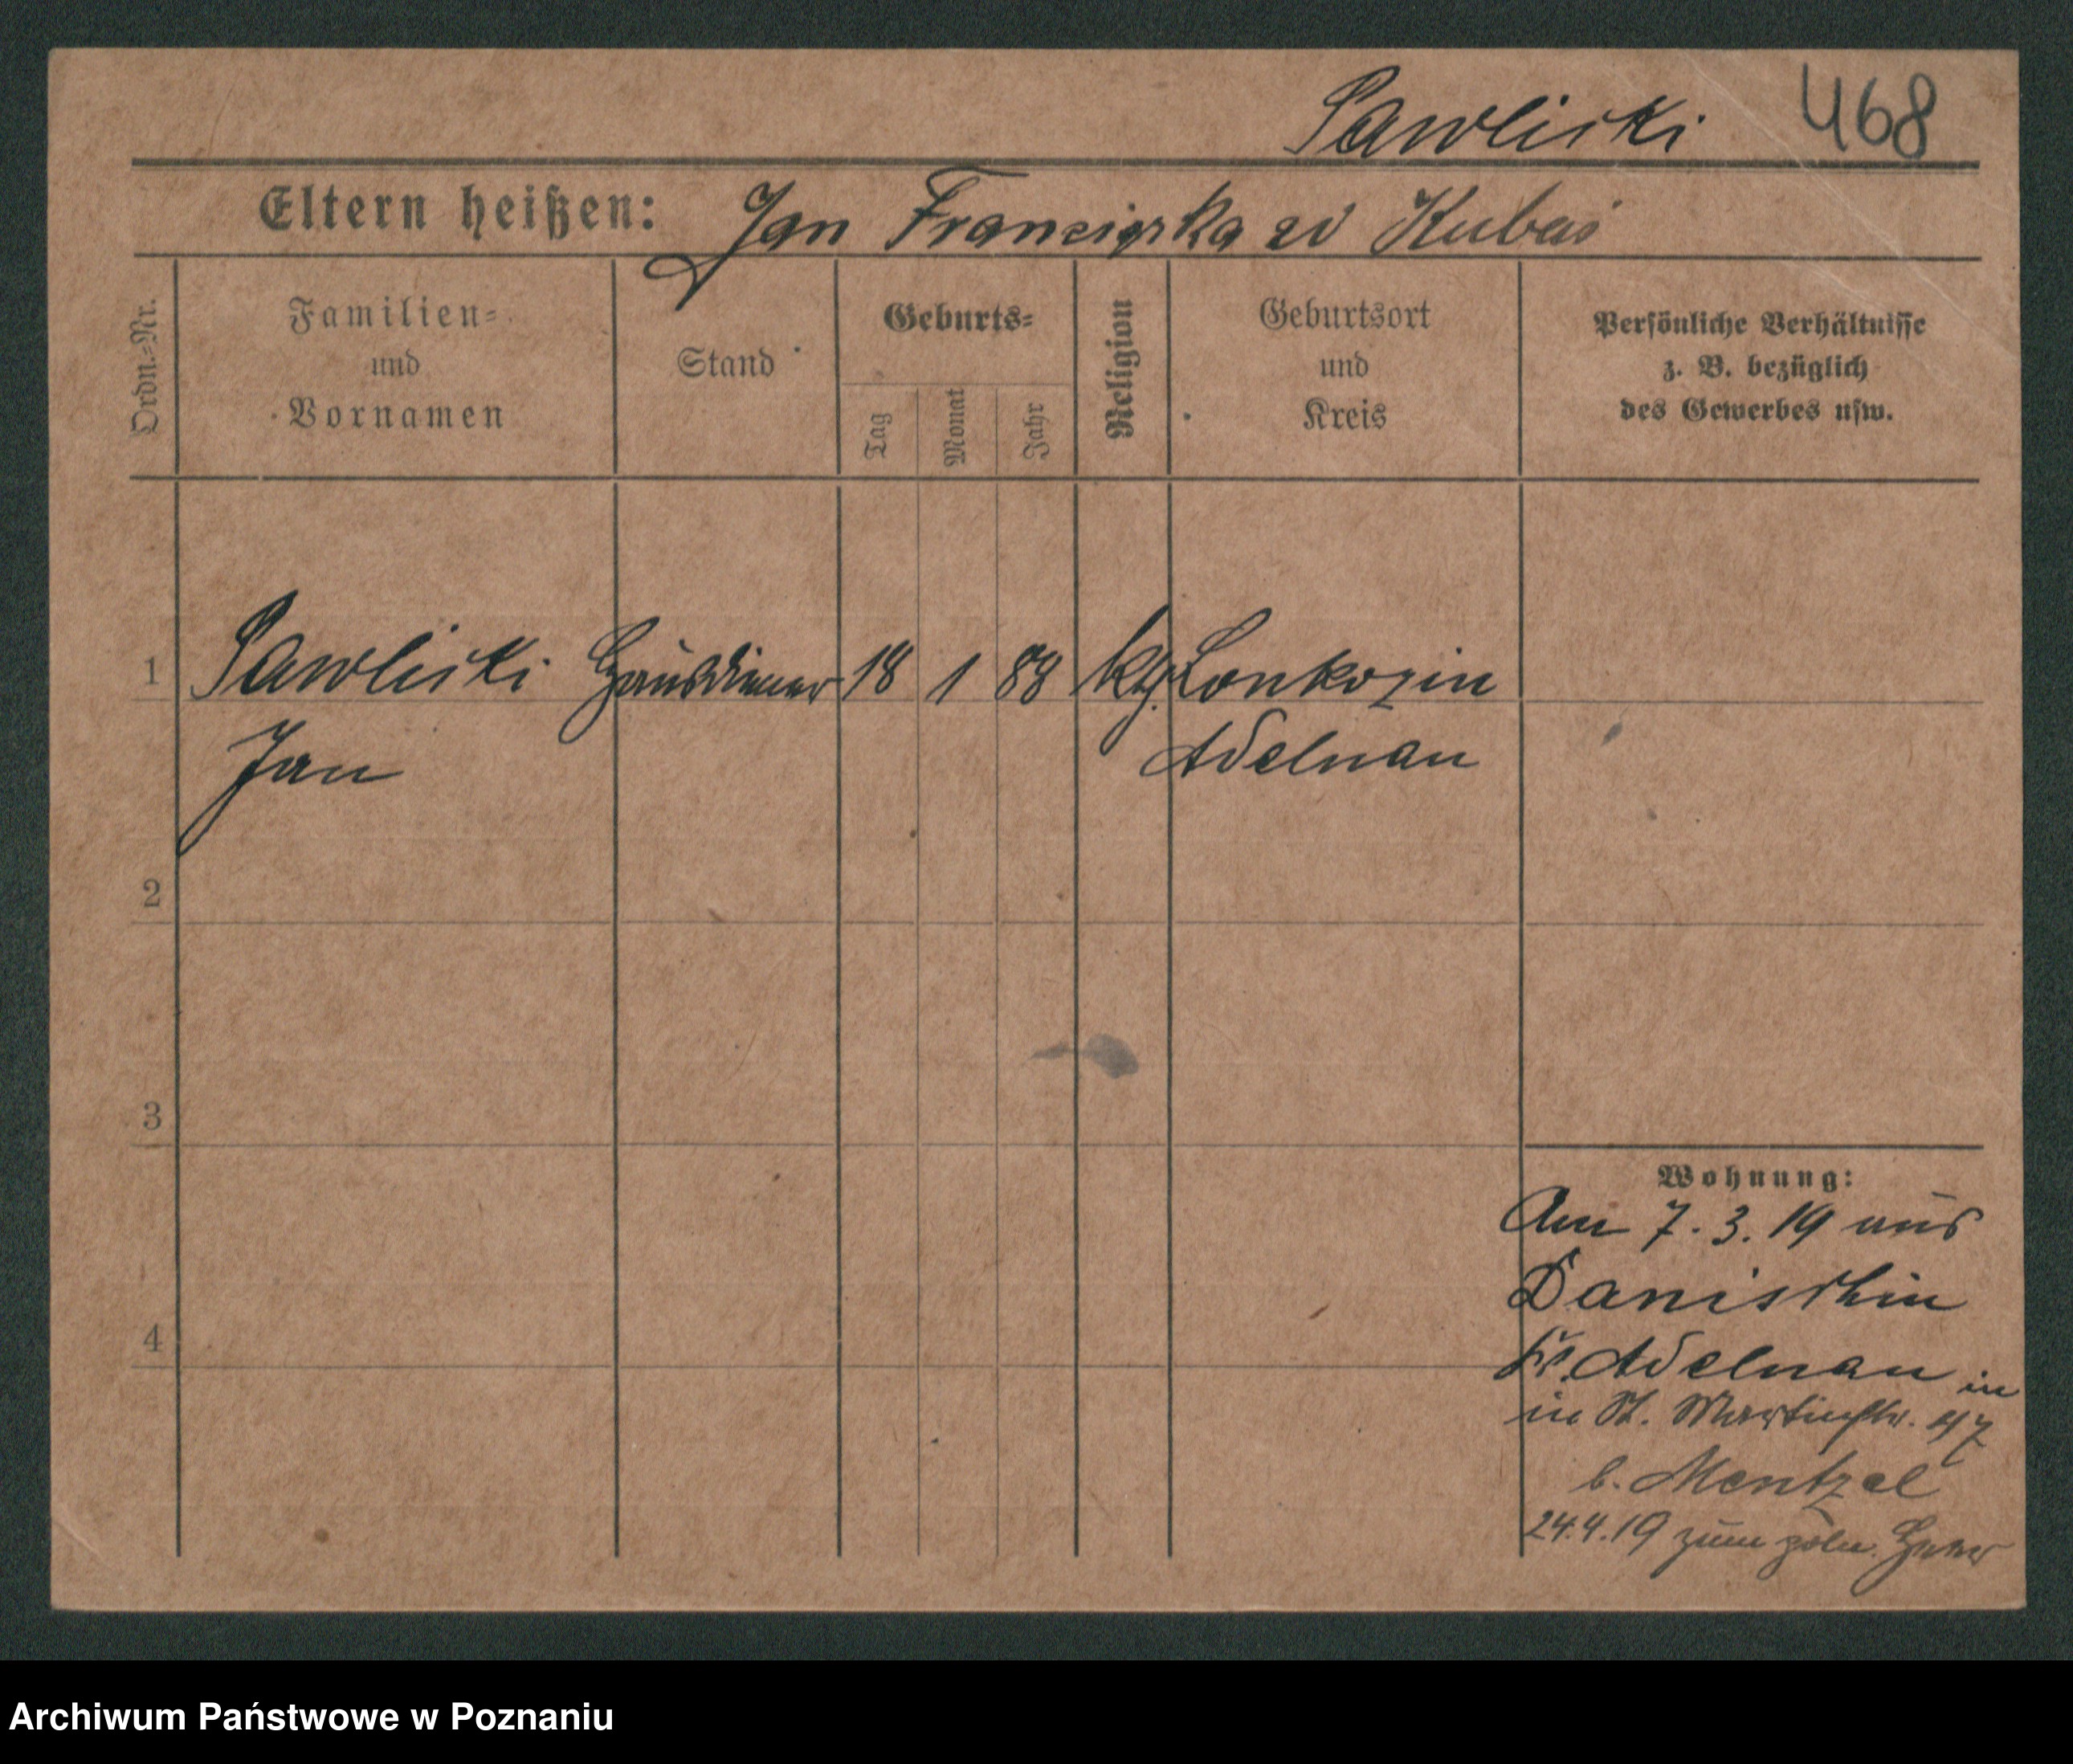 Pawliski 468
Eltern heißen: Jan Franciszka zd Kubas
Ordn.-Nr.
Familien-
und
Vornamen
Stand
Geburts-
Tag
Monat
Jahr
Religion
Geburtsort
und
Kreis
Persönliche Verhältnisse
z. B. bezüglich
des Gewerbes usw.
1 Pawliski Hausdiener 18 1 88 kth. Lonkozin
Jan Adelnau
2
3
4
Wohnung:
Am 7.3.19 aus
Danischin
Kr. Adelnau in
in St. Martinstr. 47
b. Mentzel
24.4.19 zum poln. Heer
Archiwum Państwowe w Poznaniu